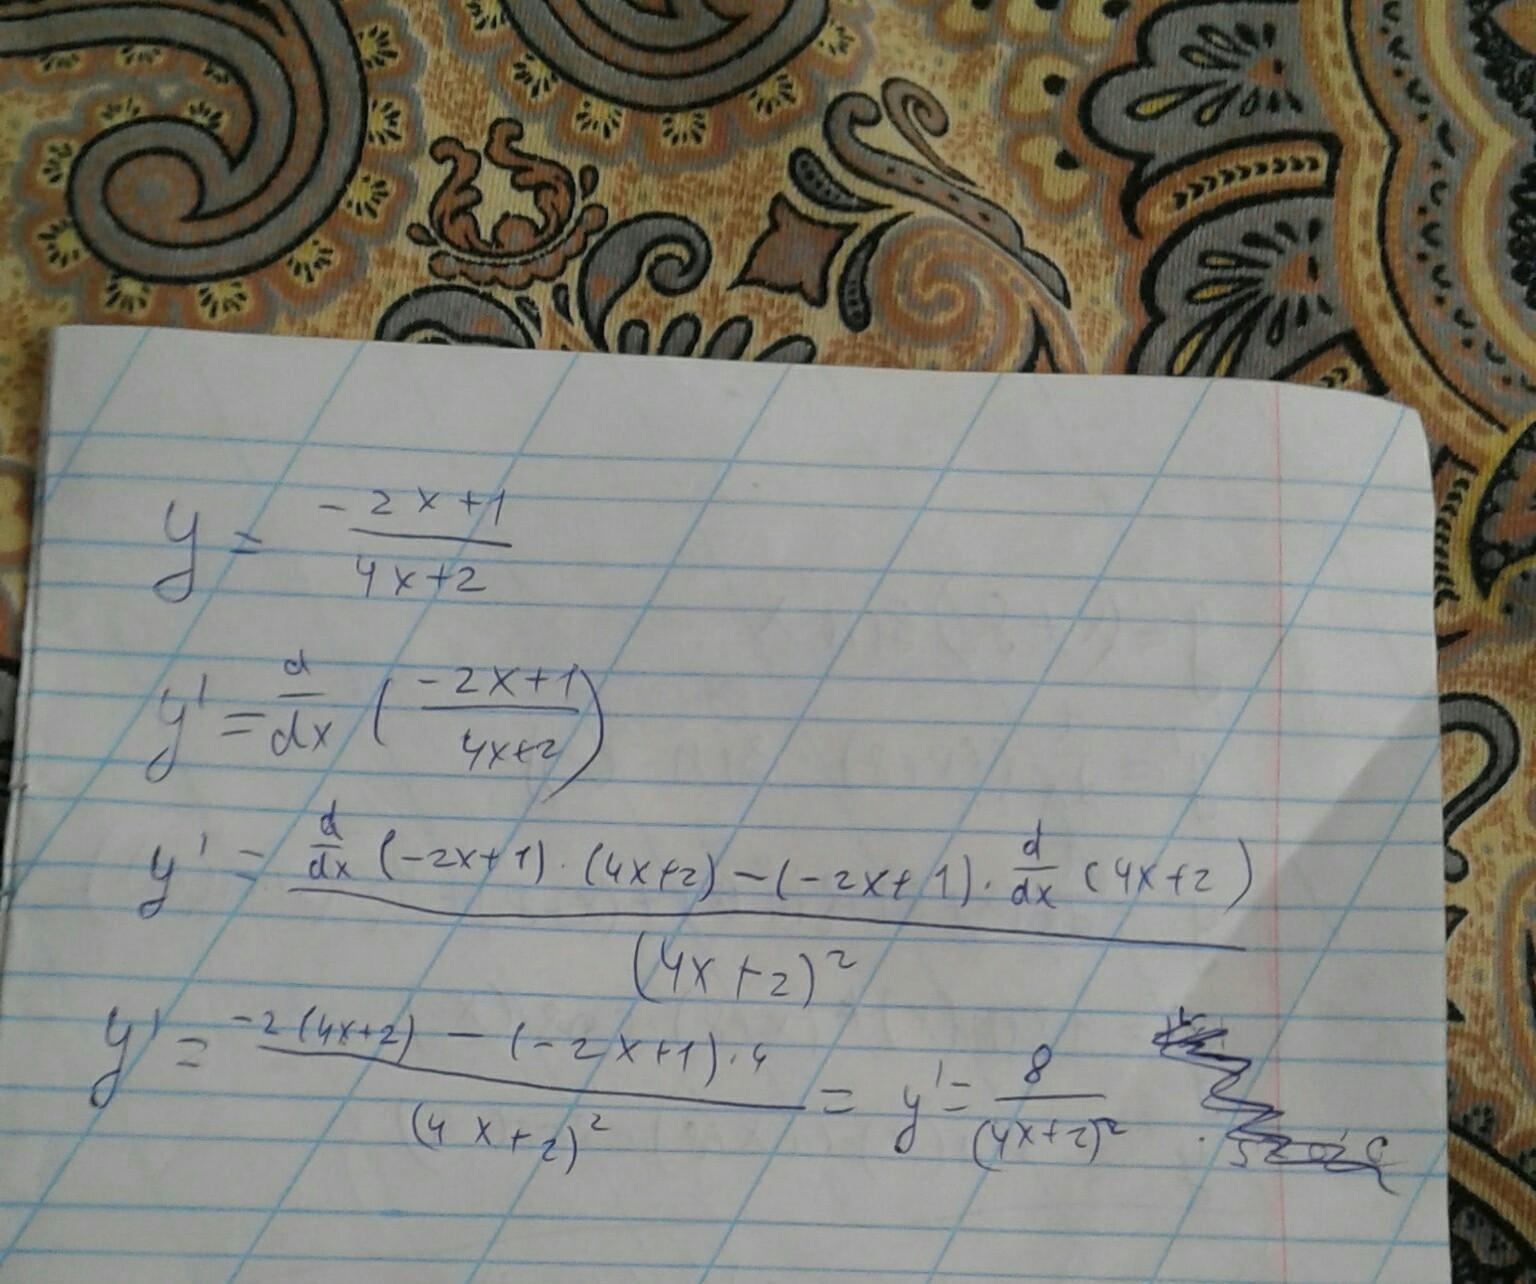 y = -2x+1 / 4x+2
y' = d/dx (-2x+1 / 4x+2)
y' = d/dx (-2x+1) · (4x+2) - (-2x+1) · d/dx (4x+2) / (4x+2)²
y' = -2(4x+2) - (-2x+1)·4 / (4x+2)² = y' = 8 / (4x+2)²